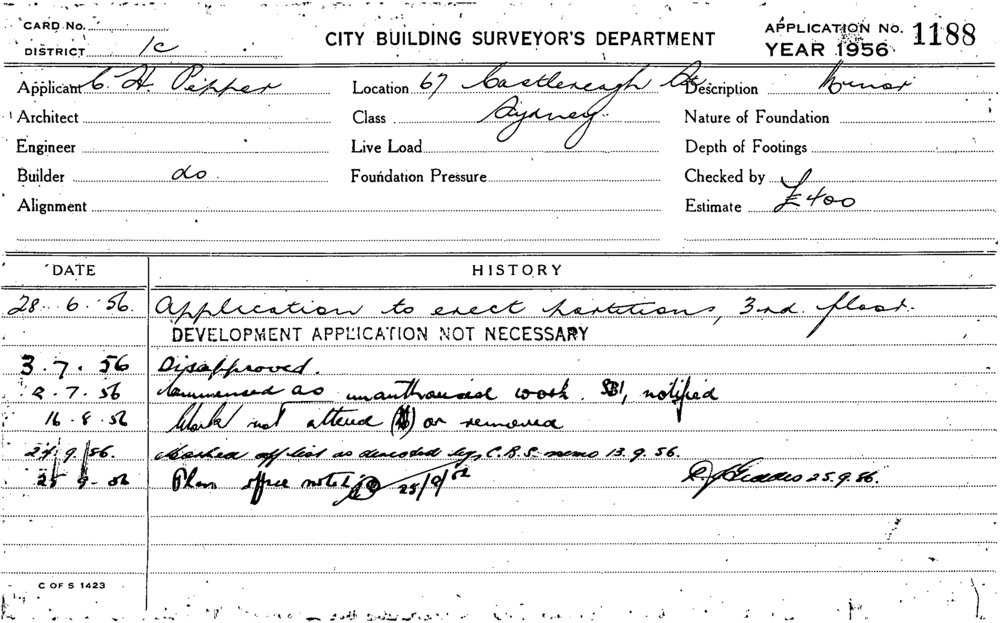 CARD No.
DISTRICT 1c
CITY BUILDING SURVEYOR'S DEPARTMENT
APPLICATION No. 1188
YEAR 1956
Applicant C. H. Pepper
Location 67 Castlereagh St
Description Minor
Architect
Class Sydney
Nature of Foundation
Engineer
Live Load
Depth of Footings
Builder do
Foundation Pressure
Checked by
Alignment
Estimate £400
DATE
HISTORY
28. 6. 56. Application to erect partitions, 3rd. floor.
DEVELOPMENT APPLICATION NOT NECESSARY
3. 7. 56 Disapproved.
2. 7. 56 Commenced as unauthorised work. SBI, notified
16. 8. 56 Work not altered or removed
24. 9. 56. as directed by C.B.S. memo 13. 9. 56.
25 9. 56 Plan office noted 25/9/56 25.9.56.
C OF S 1423